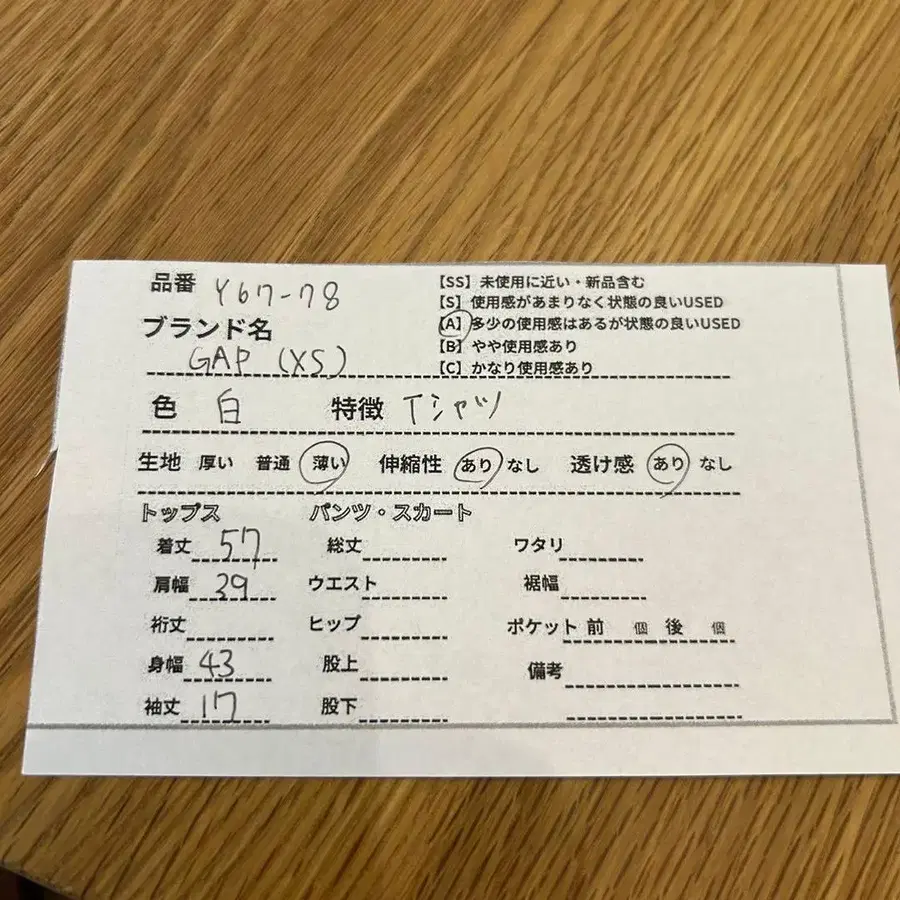 品番 Y67-78
ブランド名
GAP (XS)
【SS】未使用に近い・新品含む
【S】使用感があまりなく状態の良いUSED
【A】多少の使用感はあるが状態の良いUSED
【B】やや使用感あり
【C】かなり使用感あり
色 白 特徴 Tシャツ
生地 厚い 普通 薄い 伸縮性 あり なし 透け感 あり なし
トップス パンツ・スカート
着丈 57 総丈 ワタリ
肩幅 39 ウエスト 裾幅
裄丈 ヒップ ポケット 前 個 後 個
身幅 43 股上 備考
袖丈 17 股下